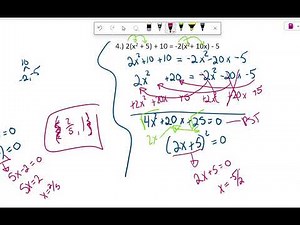 4.) 2(x² + 5) + 10 = -2(x² + 10x) - 5
2x²+10+10 = -2x²-20x-5
2x² +20 = -2x²-20x-5
+2x² +20x +5 +2x² +20x +5
4x²+20x+25=0 – PST
2x
(2x+5)² = 0
2x+5=0
x=-5/2
10
-2,-5
{2/5, 1}
=0
5x-2=0
5x=2
x=2/5